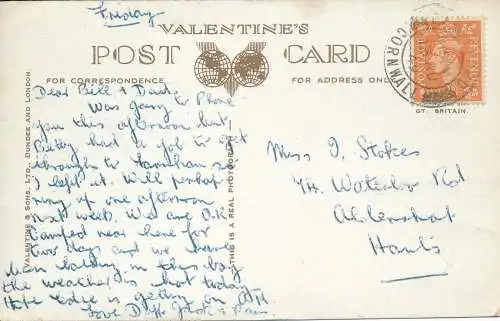 Friday
VALENTINE'S
POST CARD
FOR CORRESPONDENCE
FOR ADDRESS ONLY
Dear Bill & Dad.
Was going to Phone
you this afternoon but,
Betty had a job to get
through to Farnham so
I left it. Will perhaps
ring up one afternoon
next week. We are O.K.
Camped near here for
two days and we have
been bathing in this bay
the weather is hot today
Hope is getting on
Love
VALENTINE & SONS, LTD., DUNDEE AND LONDON.
THIS IS A REAL PHOTOGRAPH
CORNWALL
POSTAGE
GT. BRITAIN.
Miss J. Stokes
Waterloo Rd
Aldershot
Hants